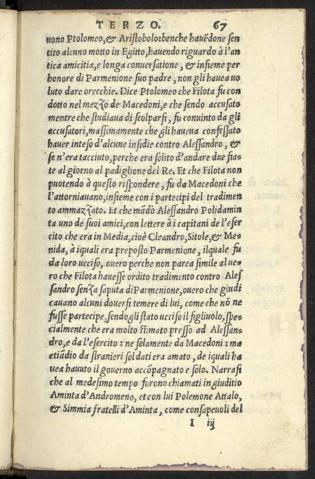 TERZO. 67
uono Ptolomeo,& Aristobolo:benche hauẽdone sen
tito alcuno motto in Egitto,hauendo riguardo à l'an
tica amicitia,e longa conuersatione, & insieme per
honore di Parmenione suo padre, non gli haueа uo
luto dare orecchie. Dice Ptolomeo che Filota fu con
dotto nel mezzo de Macedoni,e che sendo accusato
mentre che studiaua di scolparsi, fu conuinto da gli
accusatori,massimamente che gli haueua confessato
hauer inteso d'alcune insidie contro Alessandro, &
se n'era tacciuto,perche era solito d'andare due fia-
te al giorno al padiglione del Re, Et che Filota non
puotendo à questo rispondere, fu da Macedoni che
l'attorniauano,insieme con i partecipi del tradimen
to ammazzato. Et che mãdò Alessandro Polidamin
ta uno de suoi amici,con lettere à i capitani de l'eser
cito che era in Media,cioè Cleandro,Sitole,& Me-
nida, à iquali era preposto Parmenione, ilquale fu
da loro ucciso, ouero perche non parea simile al ue-
ro che Filota hauesse ordito tradimento contro Ales
sandro senza saputa di Parmenione,ouero che giudi
cauano alcuni douersi temere di lui, come che nõ ne
fusse partecipe,sendogli stato ucciso il figliuolo,spe-
cialmente che era molto stimato presso ad Alessan-
dro,e da l'esercito: ne solamente da Macedoni: ma
etiãdio da stranieri soldati era amato, de iquali ha
uea hauuto il gouerno accõpagnato e solo. Narrasi
che al medesimo tempo furono chiamati in giuditio
Aminta d'Andromeno, et con lui Polemone Attalo,
& Simmia fratelli d'Aminta, come consapeuoli del
I iij